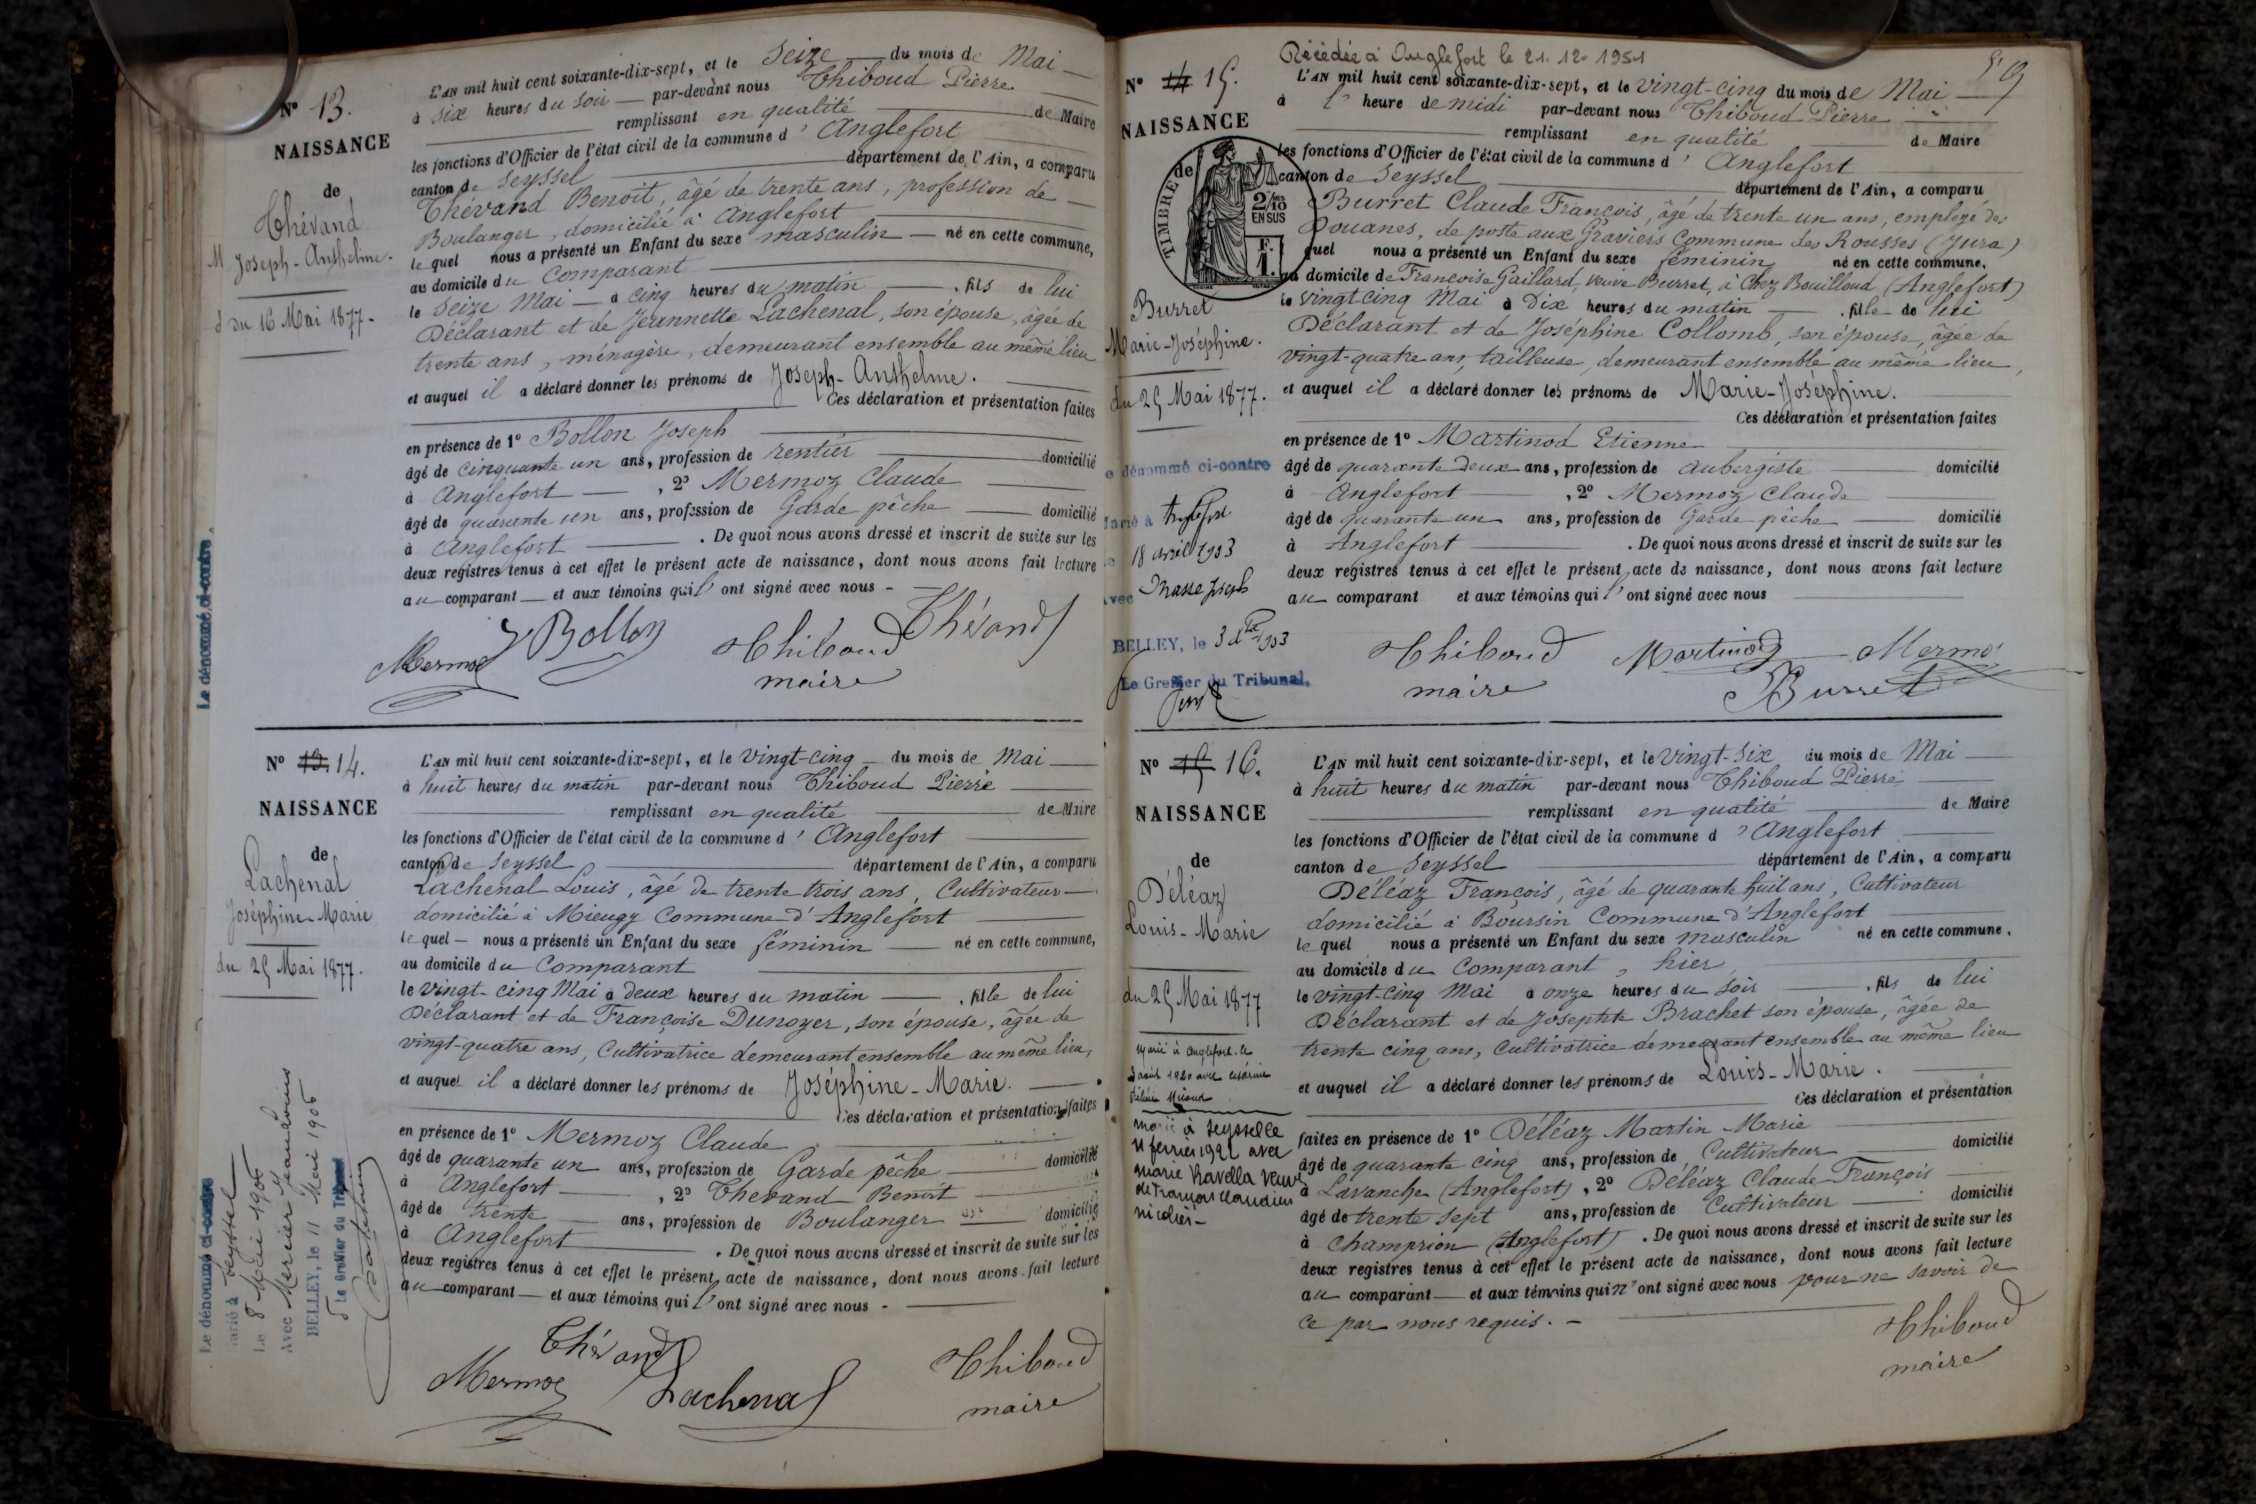 N° 13.
NAISSANCE
de
Thévand
Joseph-Anthelme.
du 16 Mai 1877.
L'AN mil huit cent soixante-dix-sept, et le Seize du mois de Mai
à six heures du soir par-devant nous Thiboud Pierre
remplissant en qualité de Maire
les fonctions d'Officier de l'état civil de la commune d'Anglefort
canton de Seyssel département de l'Ain, a comparu
Thévand Benoit, âgé de trente ans, profession de
Boulanger, domicilié à Anglefort
le quel nous a présenté un Enfant du sexe masculin né en cette commune,
au domicile du Comparant
le Seize Mai à cinq heures du matin, fils de lui
Déclarant et de Jeannette Lachenal, son épouse, âgée de
trente ans, ménagère, demeurant ensemble au même lieu
et auquel il a déclaré donner les prénoms de Joseph-Anthelme.
Ces déclaration et présentation faites
en présence de 1° Bollon Joseph
âgé de cinquante un ans, profession de rentier domicilié
à Anglefort, 2° Mermoz Claude
âgé de quarante un ans, profession de Garde pêche domicilié
à Anglefort. De quoi nous avons dressé et inscrit de suite sur les
deux registres tenus à cet effet le présent acte de naissance, dont nous avons fait lecture
au comparant et aux témoins qui l'ont signé avec nous -
Mermoz Bollon Thiboud Thévand
maire
Le dénommé ci-contre
N° 13. 14.
NAISSANCE
de
Lachenal
Joséphine-Marie
du 25 Mai 1877.
L'AN mil huit cent soixante-dix-sept, et le vingt-cinq du mois de Mai
à huit heures du matin par-devant nous Thiboud Pierre
remplissant en qualité de Maire
les fonctions d'Officier de l'état civil de la commune d'Anglefort
canton de Seyssel département de l'Ain, a comparu
Lachenal Louis, âgé de trente trois ans, Cultivateur
domicilié à Mieugy Commune d'Anglefort
le quel nous a présenté un Enfant du sexe féminin né en cette commune,
au domicile du Comparant
le vingt-cinq Mai à deux heures du matin, fille de lui
Déclarant et de Françoise Dunoyer, son épouse, âgée de
vingt-quatre ans, Cultivatrice demeurant ensemble au même lieu,
et auquel il a déclaré donner les prénoms de Joséphine-Marie.
Ces déclaration et présentation faites
en présence de 1° Mermoz Claude
âgé de quarante un ans, profession de Garde pêche domicilié
à Anglefort, 2° Thevand Benoit
âgé de trente ans, profession de Boulanger domicilié
à Anglefort. De quoi nous avons dressé et inscrit de suite sur les
deux registres tenus à cet effet le présent acte de naissance, dont nous avons fait lecture
au comparant et aux témoins qui l'ont signé avec nous -
Thévand
Mermoz Lachenal Thiboud
maire
Le dénommé ci-contre
marié à Seyssel
Le 8 Mai 1906
Avec Mercier Jean Louis
BELLEY, le 11 Mai 1906
Le Greffier du Tribunal
Décédée à Anglefort le 21.12.1951
N° 14 15.
NAISSANCE
de
TIMBRE
2/10
EN SUS
F.
1.
Burret
Marie-Joséphine.
du 25 Mai 1877.
L'AN mil huit cent soixante-dix-sept, et le vingt-cinq du mois de Mai
à l' heure de midi par-devant nous Thiboud Pierre
remplissant en qualité de Maire
les fonctions d'Officier de l'état civil de la commune d'Anglefort
canton de Seyssel département de l'Ain, a comparu
Burret Claude François, âgé de trente un ans, employé des
Douanes, de poste aux Graviers Commune des Rousses (Jura)
quel nous a présenté un Enfant du sexe féminin né en cette commune,
au domicile de Françoise Gaillard, veuve Burret, à Chez Bouilloud (Anglefort)
le vingt cinq Mai à Dix heures du matin, fille de lui
Déclarant et de Joséphine Collomb, son épouse, âgée de
vingt-quatre ans, tailleuse, demeurant ensemble au même lieu,
et auquel il a déclaré donner les prénoms de Marie-Joséphine.
Ces déclaration et présentation faites
en présence de 1° Martinod Etienne
âgé de quarante deux ans, profession de aubergiste domicilié
à Anglefort, 2° Mermoz Claude
âgé de quarante un ans, profession de Garde pêche domicilié
à Anglefort. De quoi nous avons dressé et inscrit de suite sur les
deux registres tenus à cet effet le présent acte de naissance, dont nous avons fait lecture
au comparant et aux témoins qui l'ont signé avec nous
Thiboud Martinod Mermoz
maire Burret
e dénommé ci-contre
Marié à Anglefort
18 avril 1903
avec Masse Joseph
BELLEY, le 3 1903
Le Greffier du Tribunal,
N° 15 16.
NAISSANCE
de
Déléaz
Louis-Marie
du 25 Mai 1877
L'AN mil huit cent soixante-dix-sept, et le vingt-six du mois de Mai
à huit heures du matin par-devant nous Thiboud Pierre
remplissant en qualité de Maire
les fonctions d'Officier de l'état civil de la commune d'Anglefort
canton de Seyssel département de l'Ain, a comparu
Déléaz François, âgé de quarante huit ans, Cultivateur
domicilié à Boursin Commune d'Anglefort
le quel nous a présenté un Enfant du sexe masculin né en cette commune,
au domicile du Comparant, hier
le vingt-cinq Mai à onze heures du soir, fils de lui
Déclarant et de Josephte Brachet son épouse, âgée de
trente cinq ans, Cultivatrice demeurant ensemble au même lieu
et auquel il a déclaré donner les prénoms de Louis-Marie.
Ces déclaration et présentation
faites en présence de 1° Déléaz Martin Marie
âgé de quarante cinq ans, profession de Cultivateur domicilié
à Lavanche (Anglefort), 2° Déléaz Claude François
âgé de trente sept ans, profession de Cultivateur domicilié
à Champrion (Anglefort). De quoi nous avons dressé et inscrit de suite sur les
deux registres tenus à cet effet le présent acte de naissance, dont nous avons fait lecture
au comparant et aux témoins qui n'ont signé avec nous pour ne savoir de
ce par nous requis. -
Thiboud
maire
Marié à Anglefort le
3 août 1920 avec
marié à Seysselle
11 fevrier 1922 avec
Marie Ravella veuve
de François Claudius
Nicolier -